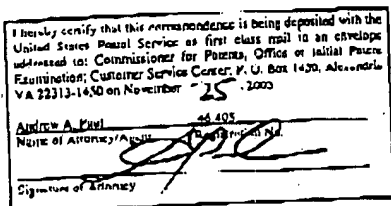 I hereby certify that this correspondence is being deposited with the
United States Postal Service as first class mail in an envelope
addressed to: Commissioner for Patents, Office of Initial Patent
Examination; Customer Service Center, P. O. Box 1450, Alexandria
VA 22313-1450 on November 25, 2003
Andrew A. 46,405
Name of Attorney/Agent Registration No.
Signature of Attorney